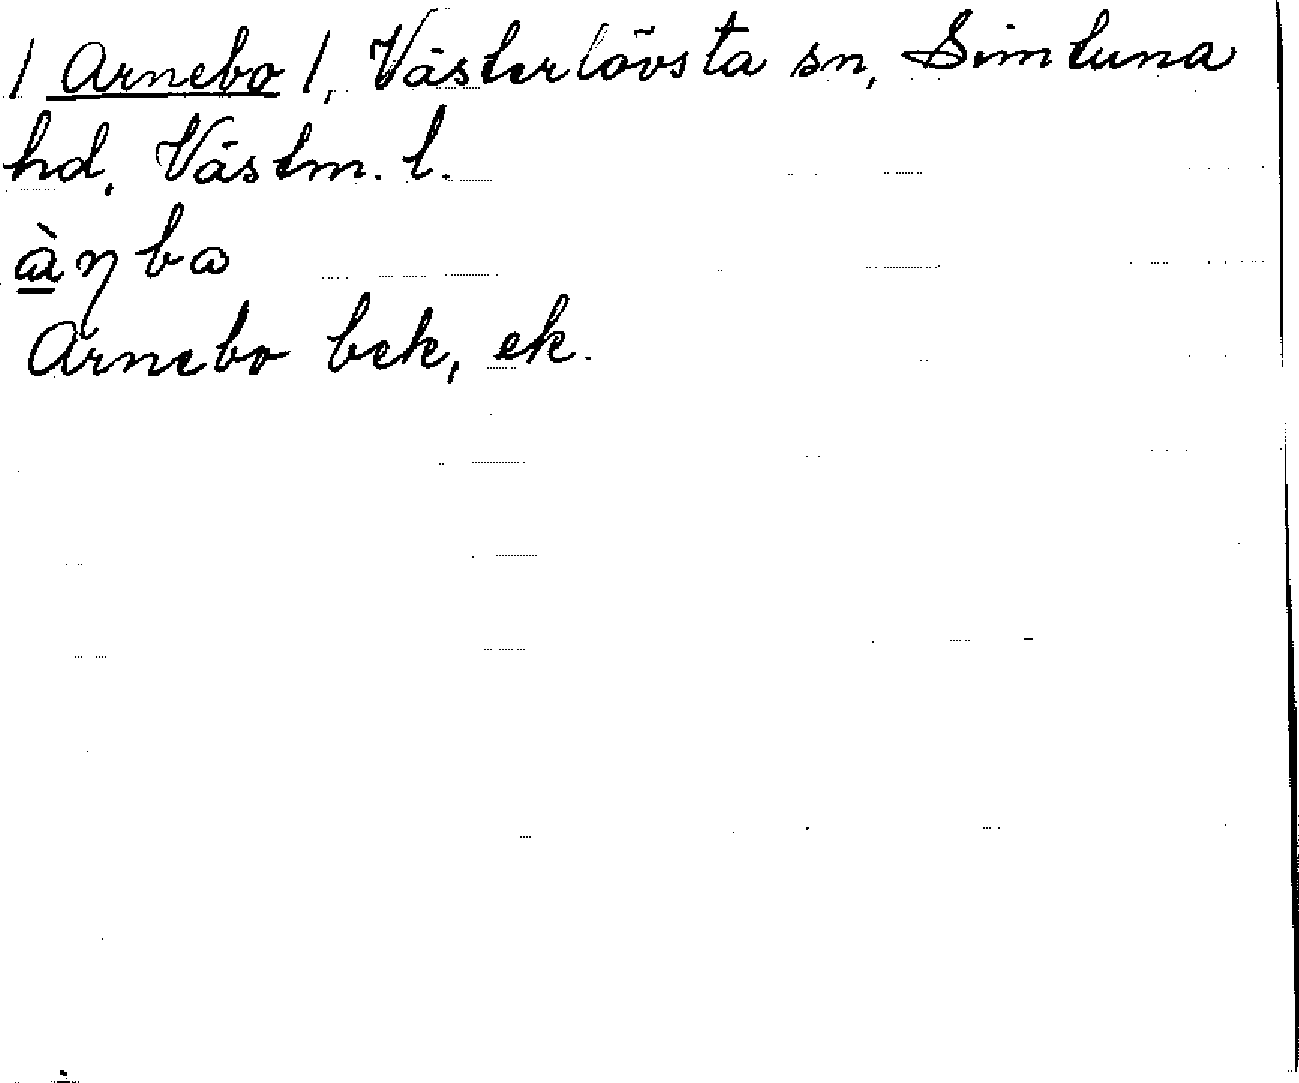 / Arnebo /, Västerlövsta sn, Simtuna
hd, Västm. l.
à̲ɳba
Arnebo bek, ek.